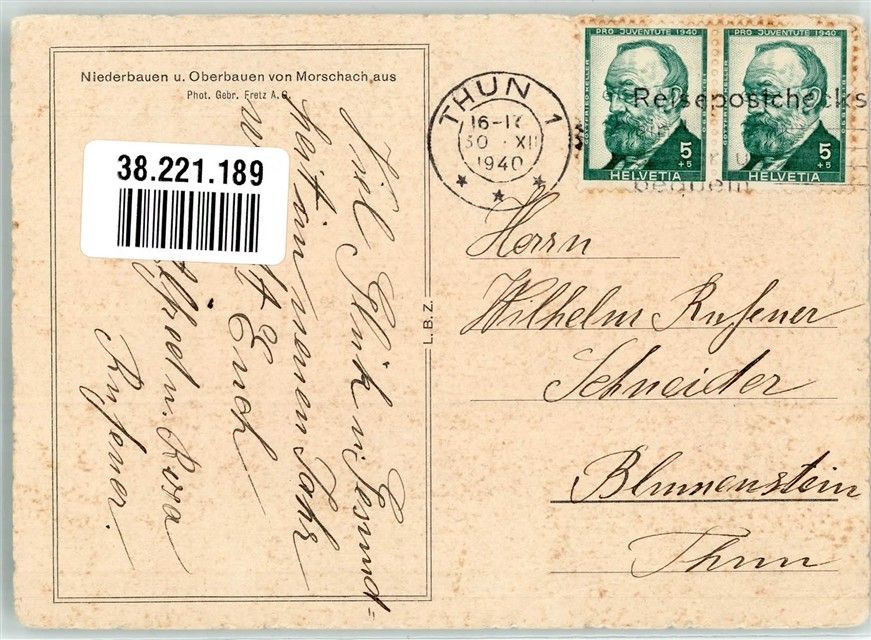 Niederbauen u. Oberbauen von Morschach aus
Phot. Gebr. Fretz A.G.
38.221.189
Viel Glück u. Gesund=
heit im neuen Jahr
Euch
Alfred u. Rosa
Rufener.
L. B. Z.
THUN 1
16-17
30. XII
1940
PRO JUVENTUTE 1940
GOTTFRIED KELLER
5
+5
HELVETIA
PRO JUVENTUTE 1940
5
+5
HELVETIA
Reisepostchecks
bequem
Herrn
Wilhelm Rufener
Schneider
Blumenstein
Thun